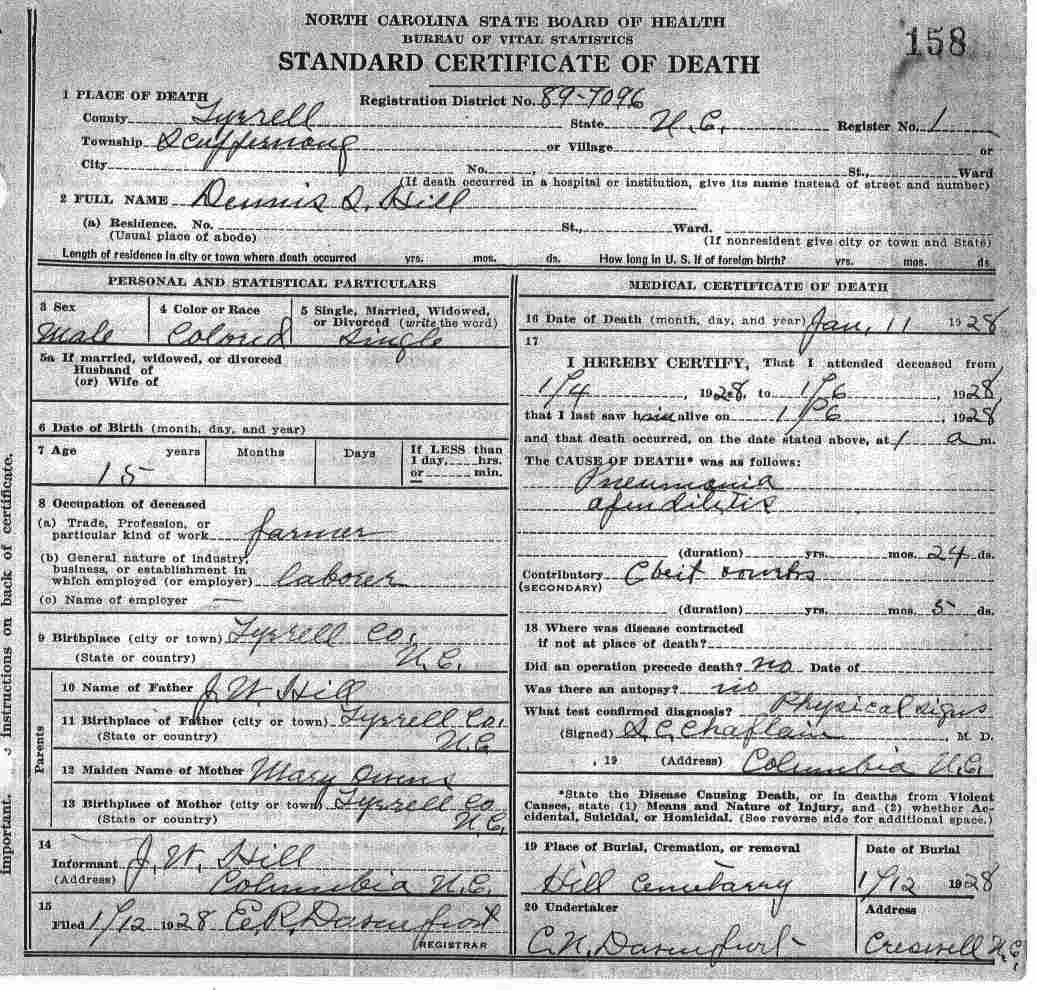 NORTH CAROLINA STATE BOARD OF HEALTH
BUREAU OF VITAL STATISTICS
158
STANDARD CERTIFICATE OF DEATH
1 PLACE OF DEATH Registration District No. 89-7096
County Tyrrell State N.C. Register No. 1
Township Scuppernong or Village or
City No. , St., Ward
(If death occurred in a hospital or institution, give its name instead of street and number)
2 FULL NAME Dennis S. Hill
(a) Residence. No. St., Ward.
(Usual place of abode) (If nonresident give city or town and State)
Length of residence in city or town where death occurred yrs. mos. ds. How long in U. S. if of foreign birth? yrs. mos. ds
PERSONAL AND STATISTICAL PARTICULARS
3 Sex 4 Color or Race 5 Single, Married, Widowed,
or Divorced (write the word)
Male Colored Single
5a If married, widowed, or divorced
Husband of
(or) Wife of
6 Date of Birth (month, day, and year)
7 Age years Months Days If LESS than
1 day, hrs.
or min.
15
8 Occupation of deceased
(a) Trade, Profession, or
particular kind of work farmer
(b) General nature of industry,
business, or establishment in
which employed (or employer) laborer
(c) Name of employer —
9 Birthplace (city or town) Tyrrell Co.
(State or country) N.C.
Parents
10 Name of Father J. W. Hill
11 Birthplace of Father (city or town) Tyrrell Co.
(State or country) N.C
12 Maiden Name of Mother Mary Owens
13 Birthplace of Mother (city or town) Tyrrell Co
(State or country) N.C.
14
Informant J. W. Hill
(Address) Columbia N.C.
15
Filed 1/12 1928 E.R. Davenport
REGISTRAR
MEDICAL CERTIFICATE OF DEATH
16 Date of Death (month, day, and year) Jan, 11 1928
17
I HEREBY CERTIFY, That I attended deceased from
1/4 , 1928, to 1/6 , 1928
that I last saw him alive on 1/6 , 1928
and that death occurred, on the date stated above, at 1 a m.
The CAUSE OF DEATH* was as follows:
Pneumonia
(duration) yrs. mos. 24 ds.
Contributory
(SECONDARY)
(duration) yrs. mos. 5 ds.
18 Where was disease contracted
if not at place of death?
Did an operation precede death? no Date of
Was there an autopsy? no
What test confirmed diagnosis? Physical signs
(Signed) , M. D.
, 19 (Address) Columbia N.C.
*State the Disease Causing Death, or in deaths from Violent
Causes, state (1) Means and Nature of Injury, and (2) whether Ac-
cidental, Suicidal, or Homicidal. (See reverse side for additional space.)
19 Place of Burial, Cremation, or removal Date of Burial
Hill 1/12 1928
20 Undertaker Address
C.N. Creswell N.C.
Important. Instructions on back of certificate.